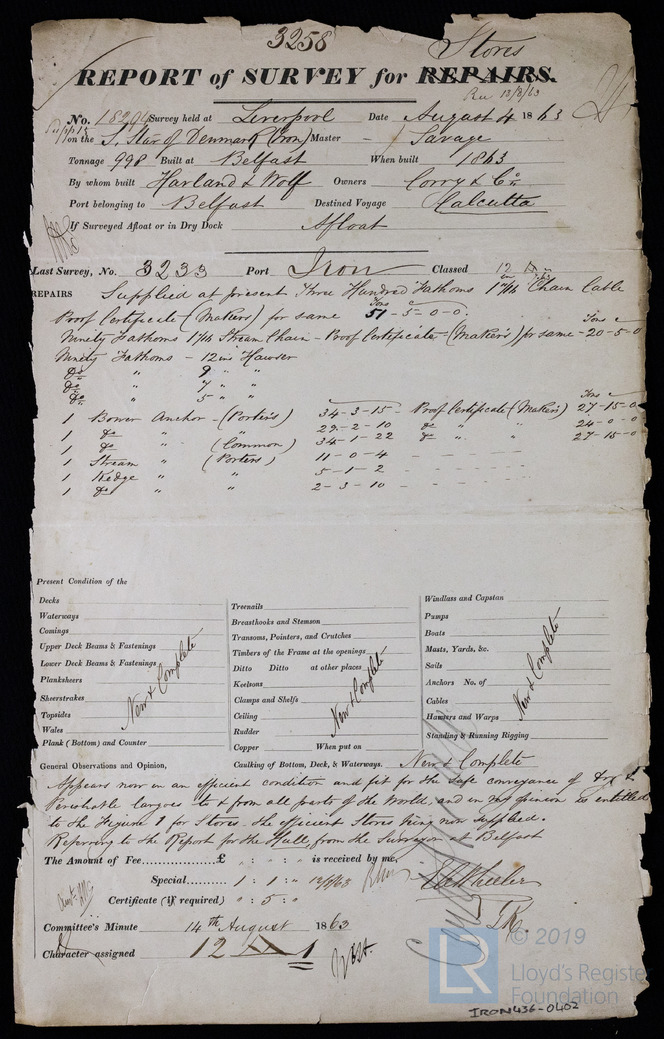 3258
Stores
REPORT of SURVEY for REPAIRS.
Rec 13/8/63
No. 18294 Survey held at Liverpool Date August 4 1863
on the S. Star of Denmark (Iron) Master Savage
Tonnage 998 Built at Belfast When built 1863
By whom built Harland & Wolf Owners Corry & Co.
Port belonging to Belfast Destined Voyage Calcutta
If Surveyed Afloat or in Dry Dock Afloat
Last Survey, No. 3233 Port Iron Classed 12
REPAIRS Supplied at present Three Hundred Fathoms 1 7/16 Chain Cable
Proof Certificate (Makers) for same Tons 51-5-0-0.
Ninety Fathoms 1 1/16 Stream Chain - Proof Certificate (Makers) for same - Tons c 20-5-0
Ninety Fathoms - 12 ins Hawser
Do " 9 " "
Do " 7 " "
Do " 5 " "
1 Bower Anchor - (Porters) 34-3-15 - Proof Certificate (Makers) Tons c 27-15-0
1 do " " 29-2-10 do " " 24-0-0
1 do " (Common) 34-1-22 do " " 27-15-0
1 Stream " (Porters) 11-0-4
1 Kedge " " 5-1-2
1 do " " 2-3-10
Present Condition of the
Decks
Waterways
Comings
Upper Deck Beams & Fastenings
Lower Deck Beams & Fastenings
Planksheers
Sheerstrakes
Topsides
Wales
Plank (Bottom) and Counter
New & Complete
Treenails
Breasthooks and Stemson
Transoms, Pointers, and Crutches
Timbers of the Frame at the openings
Ditto Ditto at other places
Keelsons
Clamps and Shelfs
Ceiling
Rudder
Copper When put on
New & Complete
Windlass and Capstan
Pumps
Boats
Masts, Yards, &c.
Sails
Anchors No. of
Cables
Hawsers and Warps
Standing & Running Rigging
New & Complete
General Observations and Opinion, Caulking of Bottom, Deck, & Waterways. New & Complete
Appears now in an efficient condition and fit for the safe conveyance of dry &
Perishable Cargoes to & from all parts of the World, and in my opinion is entitled
to the Figure 1 for Stores. The efficient Stores being now supplied.
Referring to the Report for the Hull, from the Surveyor at Belfast
The Amount of Fee £ " : " : " is received by me,
Special 1 : 1 : " 12/8/63
Certificate (if required) " : 5 : "
Wheeler
Committee's Minute 14th August 1863
Character assigned 12 1
© 2019
LR
Lloyd's Register
Foundation
IRON436-0402